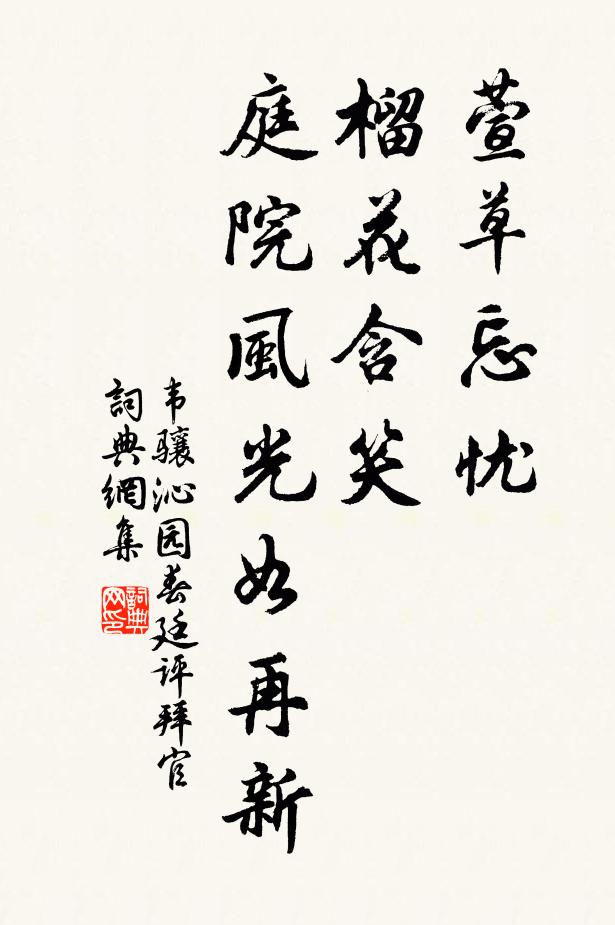 萱草忘忧
榴花含笑
庭院風光如再新
韦骧沁园春廷评拜官
詞典網集
詞典网印